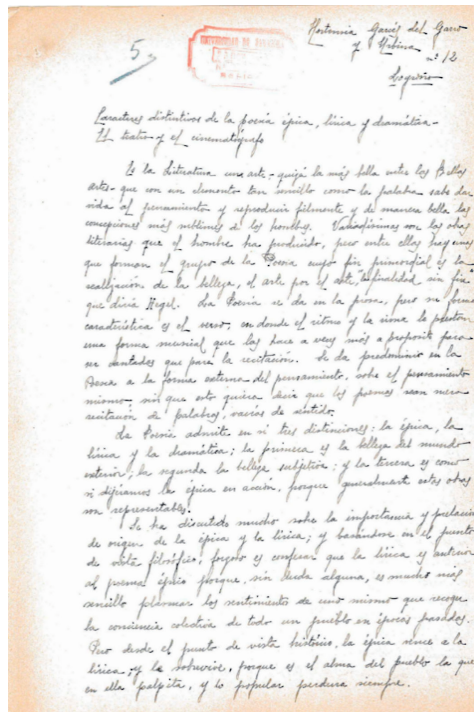 Hortensia Garcés del Garro
y Urbina
nº 12
Logroño
5
UNIVERSIDAD DE
Caracteres distintivos de la poesía épica, lírica y dramática-
El teatro y el cinematógrafo
Es la Literatura una arte - quizá la más bella entre las Bellas
artes - que con un elemento tan sencillo como la palabra sabe dar
vida al pensamiento y reproducir fielmente y de manera bella las
concepciones más sublimes de los hombres. Variadísimas son las obras
literarias que el hombre ha producido, pero entre ellas hay unas
que forman el grupo de la Poesía cuyo fin primordial es la
realización de la belleza, el arte por el arte, "la finalidad sin fin"
que diría Hegel. La Poesía se da en la prosa, pero su forma
característica es el verso, en donde el ritmo y la rima le prestan
una forma musical que las hace a veces más a propósito para
ser cantadas que para la recitación. Se da predominio en la
Poesía a la forma externa del pensamiento, sobre el pensamiento
mismo sin que esto quiera decir que los poemas sean mera
recitación de palabras, vacías de sentido.
La Poesía admite en sí tres distinciones: la épica, la
lírica y la dramática; la primera es la belleza del mundo
exterior; la segunda la belleza subjetiva; y la tercera es como
si dijéramos la épica en acción, porque generalmente estas obras
son representables.
Se ha discutido mucho sobre la importancia y prelación
de origen de la épica y la lírica; y basándose en el punto
de vista filosófico, forzoso es confesar que la lírica es anterior
al poema épico porque, sin duda alguna, es mucho más
sencillo plasmar los sentimientos de uno mismo que recoger
la conciencia colectiva de todo un pueblo en épocas pasadas.
Pero desde el punto de vista histórico, la épica vence a la
lírica, y la sobrevive, porque es el alma del pueblo la que
en ella palpita, y lo popular perdura siempre.